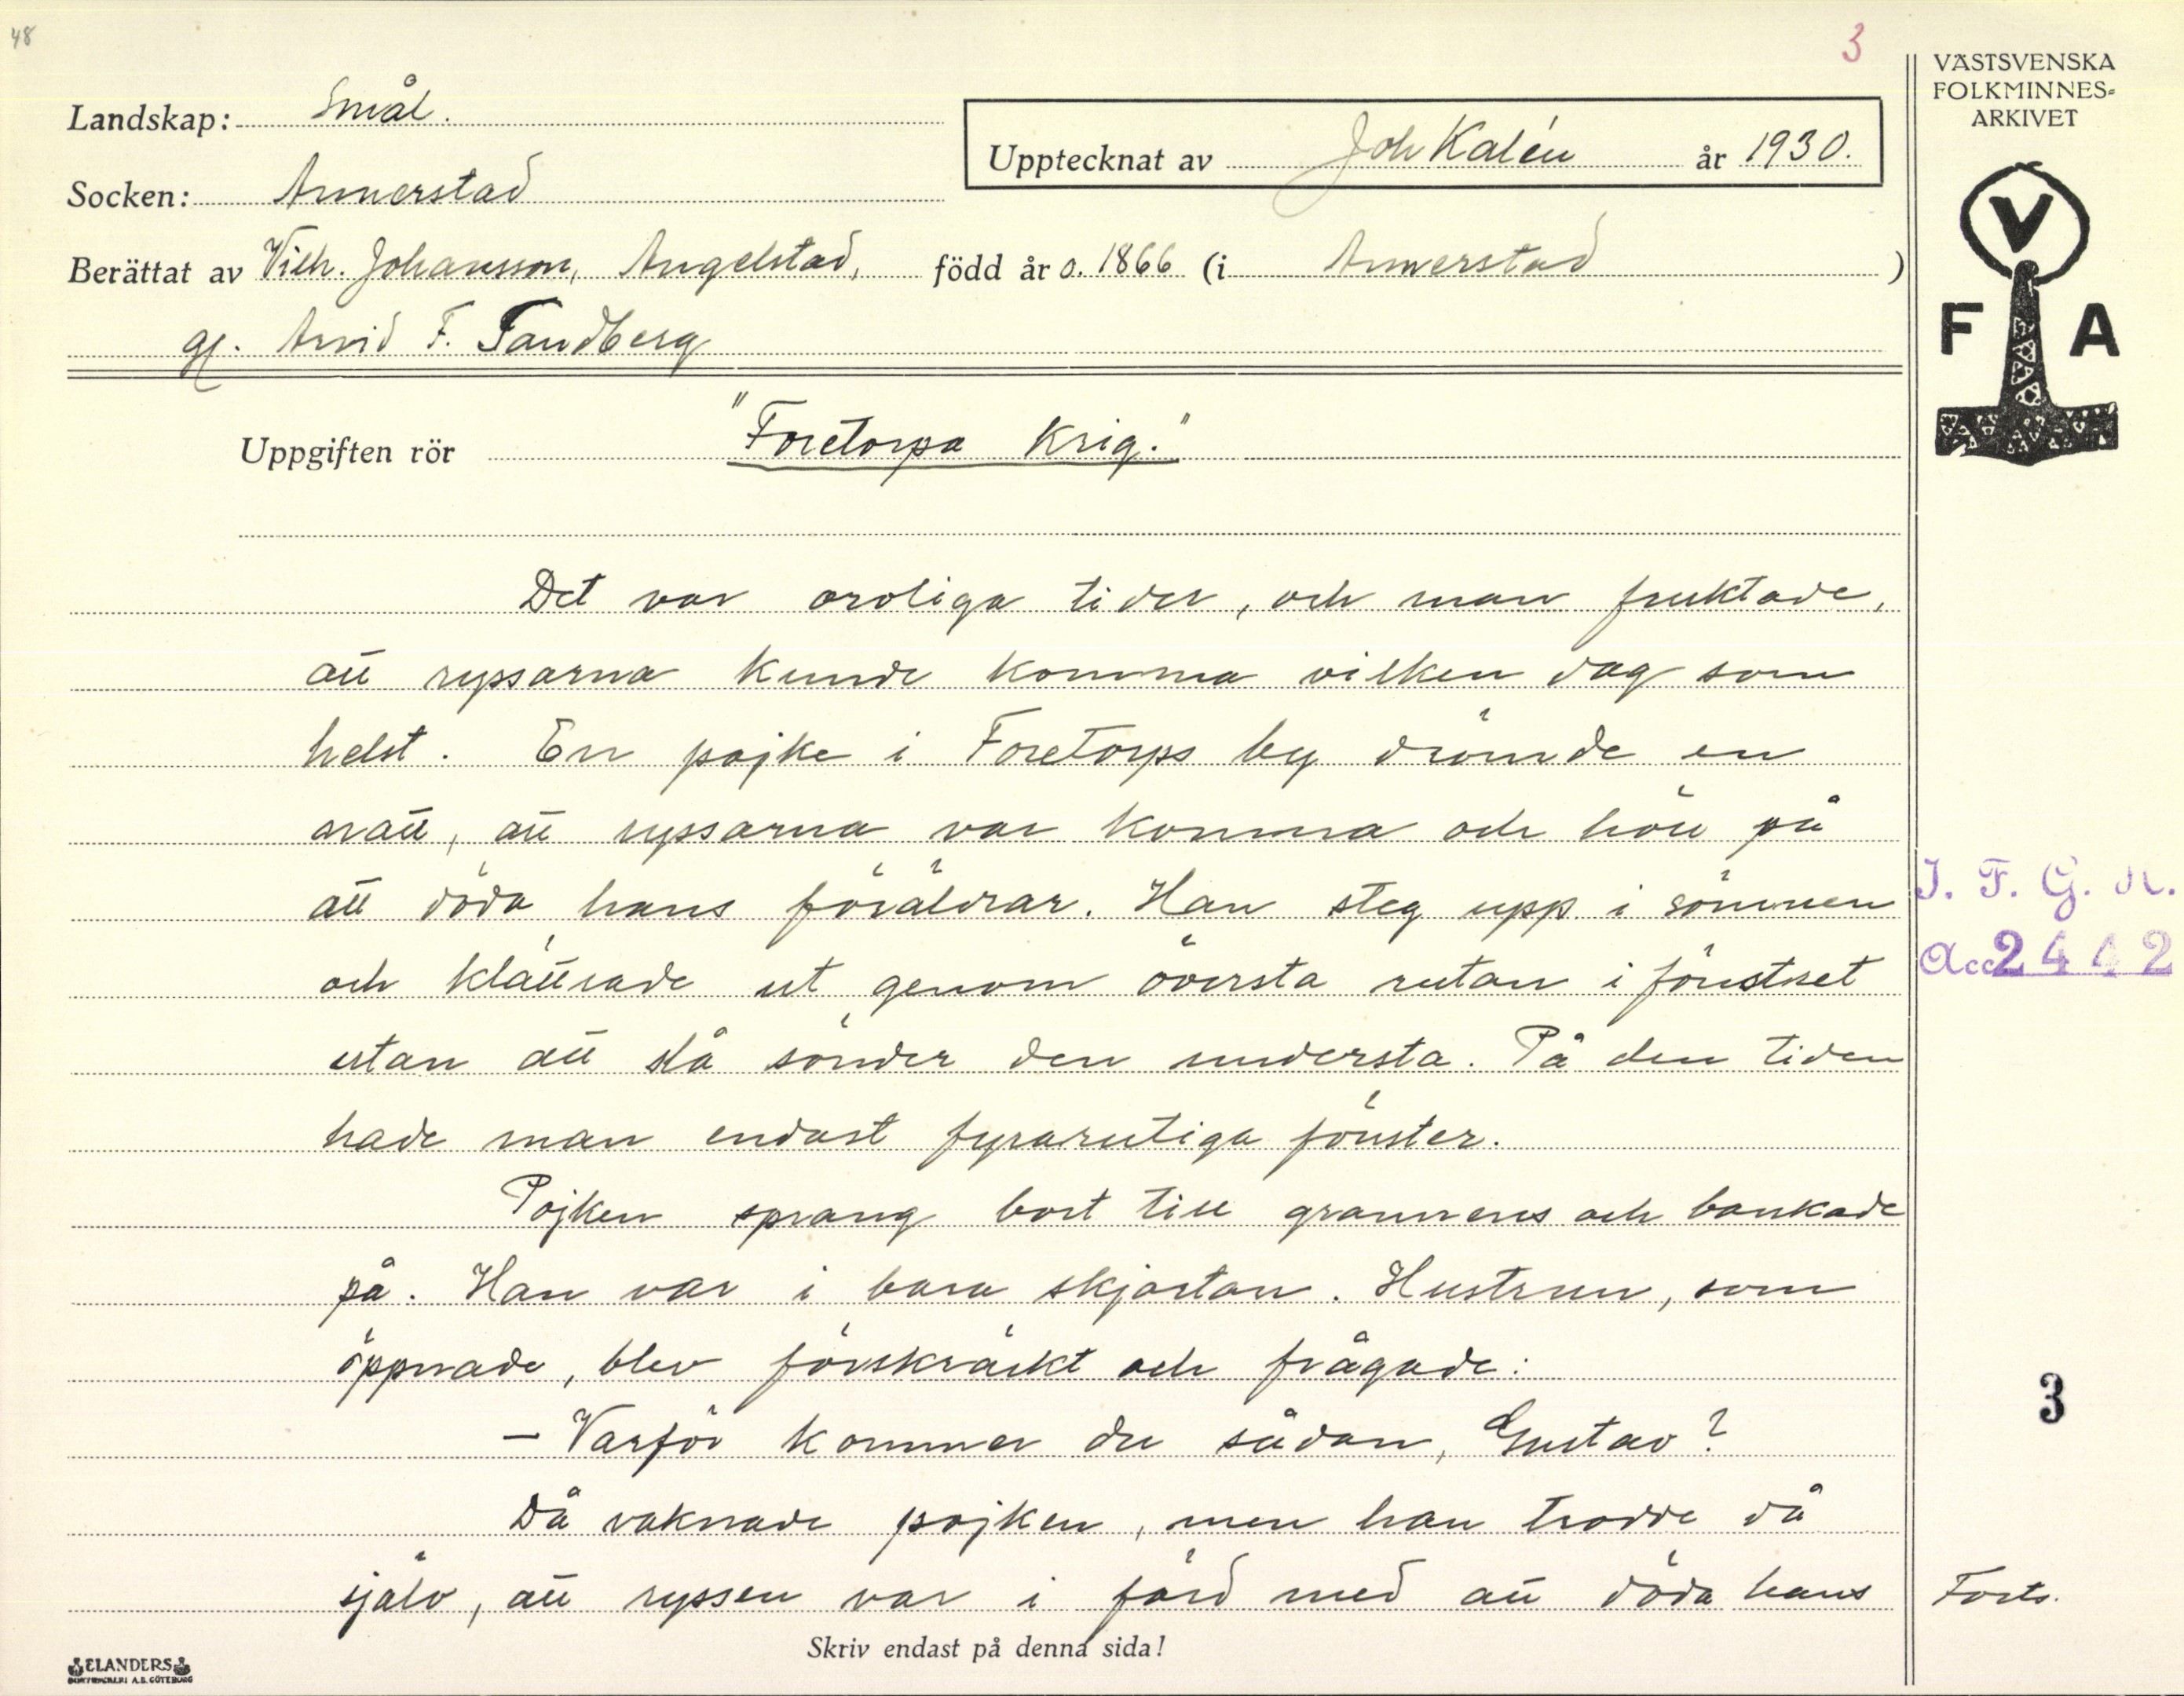 48
3
Landskap: Smål.
Socken: Annerstad
Upptecknat av Joh Kalén år 1930.
Berättat av Vilh. Johansson, Angelstad, född år o. 1866 (i Annerstad )
gf. Arvid F. Sandberg
Uppgiften rör "Foretorpa Krig."
Det var oroliga tider, och man fruktade,
att ryssarna kunde komma vilken dag som
helst. En pojke i Foretorps by drömde en
natt, att ryssarna var komna och höll på
att döda hans föräldrar. Han steg upp i sömnen
och klättrade ut genom översta rutan i fönstret
utan att slå sönder den understa. På den tiden
hade man endast fyrarutiga fönster.
Pojken sprang bort till grannens och bankade
på. Han var i bara skjortan. Hustrun, som
öppnade, blev förskräckt och frågade:
– Varför kommer du sådan, Gustav?
Då vaknade pojken, men han trodde då
själv, att ryssen var i färd med att döda hans
Forts.
Skriv endast på denna sida!
ELANDERS
BOKTRYCKERI A.B. GÖTEBORG
VÄSTSVENSKA
FOLKMINNES-
ARKIVET
V
F A
I. F. G. H.
Acc 2442
3